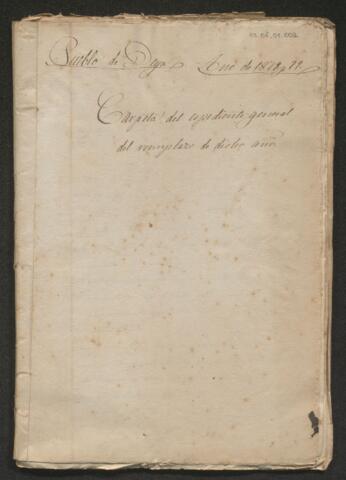 Pueblo de Deya Año de 1872
Carpeta del expediente general
del reemplazo de dicho año